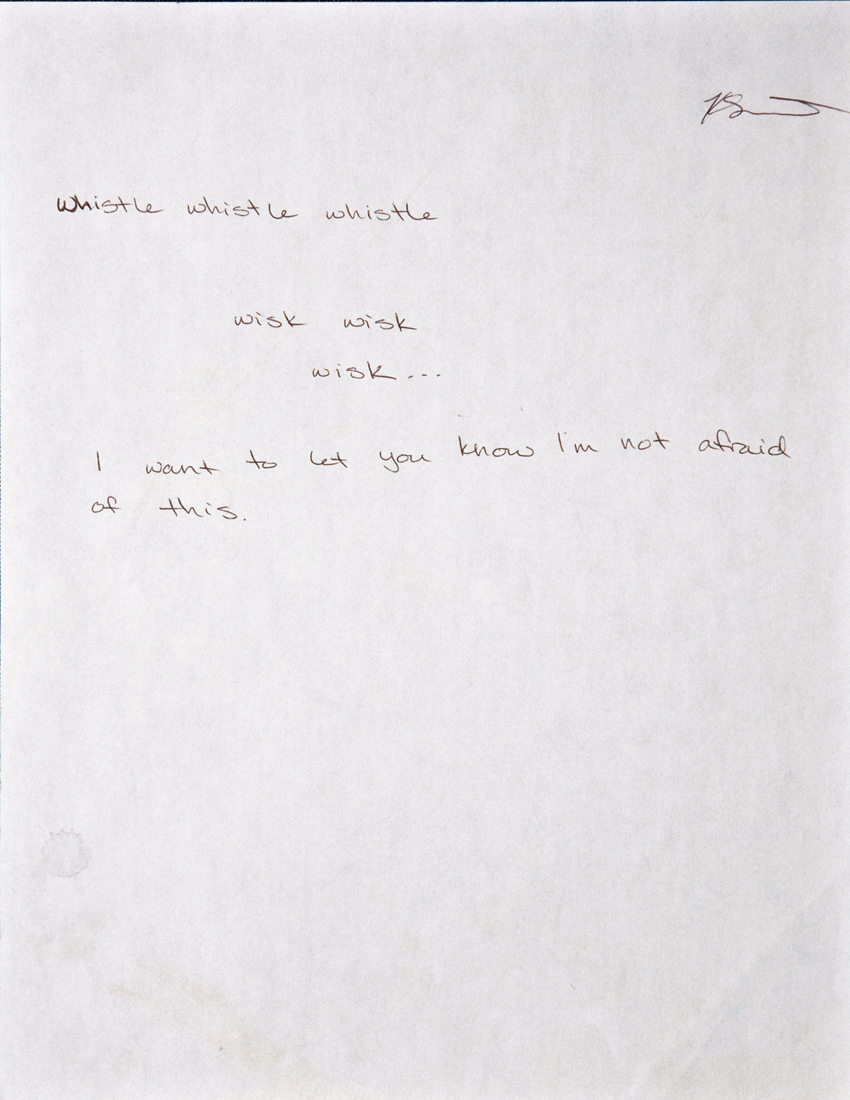 whistle whistle whistle
wisk wisk
wisk...
I want to let you know I'm not afraid
of this.